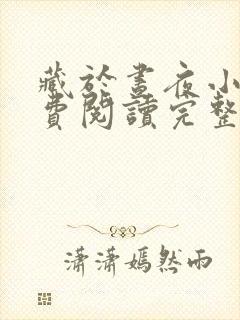 藏於晝夜小
費閱讀完整
瀟瀟嫣然雨